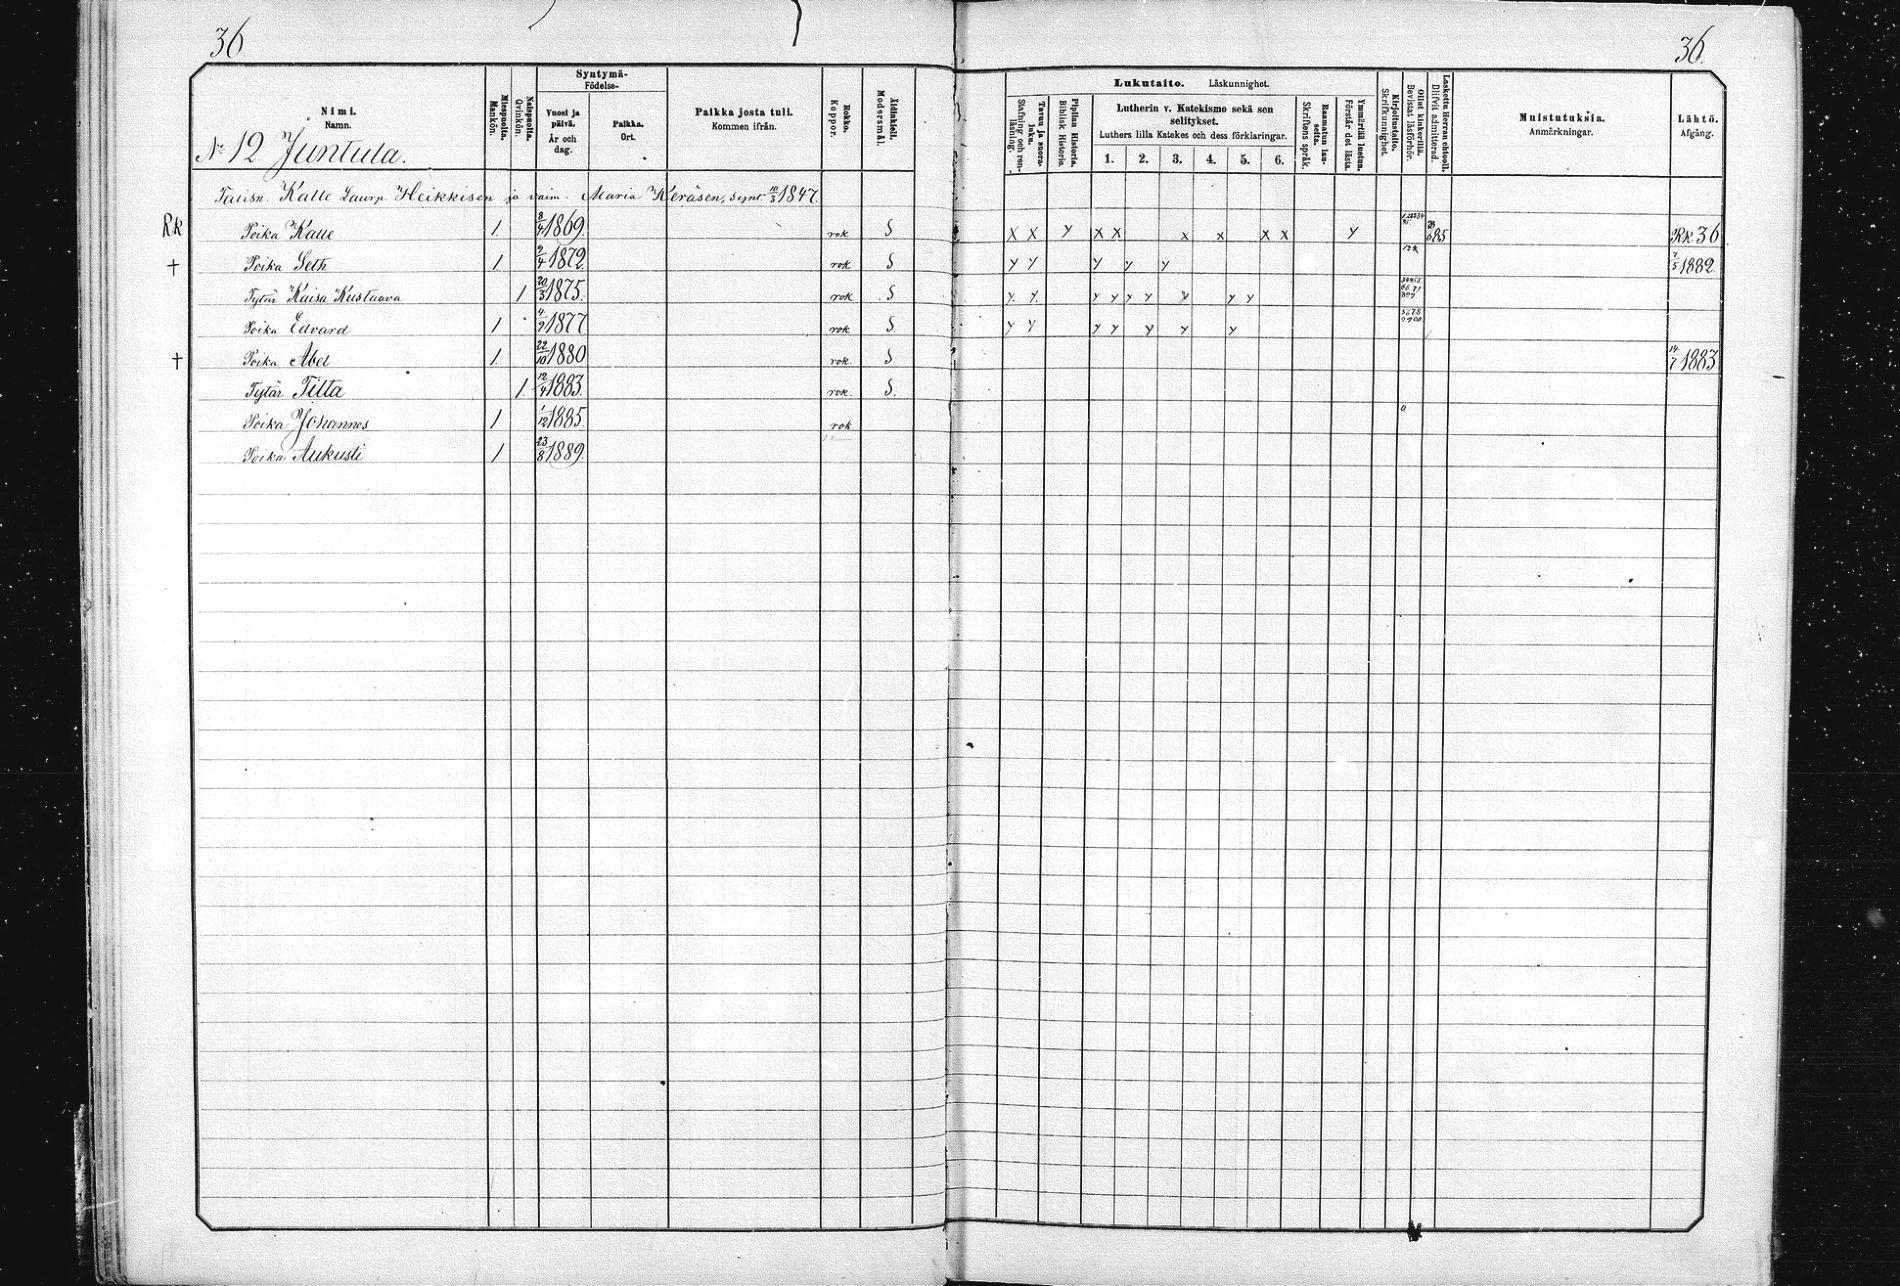 36
36
Nimi.
Namn.
No 12 Juntula.
Miespuolia.
Mankön.
Naispuolia.
Qvinkön.
Syntymä-
Födelse-
Vuosi ja päivä.
År och dag.
Paikka.
Ort.
Paikka josta tuli.
Kommen ifrån.
Rokko.
Koppor.
Äidinkieli.
Modersmål.
Lukutaito. Läskunnighet.
Tavuu ja suora-luku.
Stafning och ren-läsning.
Piplian Historia.
Biblisk Historia.
Lutherin v. Katekismo sekä sen selitykset.
Luthers lilla Katekes och dess förklaringar.
1. 2. 3. 4. 5. 6.
Raamatun lau-seita.
Skriftens språk.
Ymmärtää luetun.
Förstår det lästa.
Kirjoitustaito.
Skriftkunnighet.
Ollut kinkerillä.
Bevistat läsförhör.
Laskettu Herran ehtooll.
Blifvit admitterad.
Muistutuksia.
Anmärkningar.
Lähtö.
Afgång.
Talisn. Kalle Laurp. Heikkisen ja vaim. Maria Keräsen, synt. 10/3 1847.
Rk Poika Kalle 1 8/4 1869 rok S x x y x x x x x x y 85 Rk 36
† Poika Seth 1 2/4 1872 rok S y y y y y 7/5 1882
Tytär Kaisa Kustaava 1 20/3 1875. rok S y y y y y y y y y
Poika Edvard 1 4/9 1877 rok S y y y y y y y
† Poika Abel 1 22/10 1880 rok. S 14/7 1883
Tytär Tilta 1 12/4 1883. rok. S.
Poika Johannes 1 1/12 1885. rok
Poika Aukusti 1 23/8 1889.